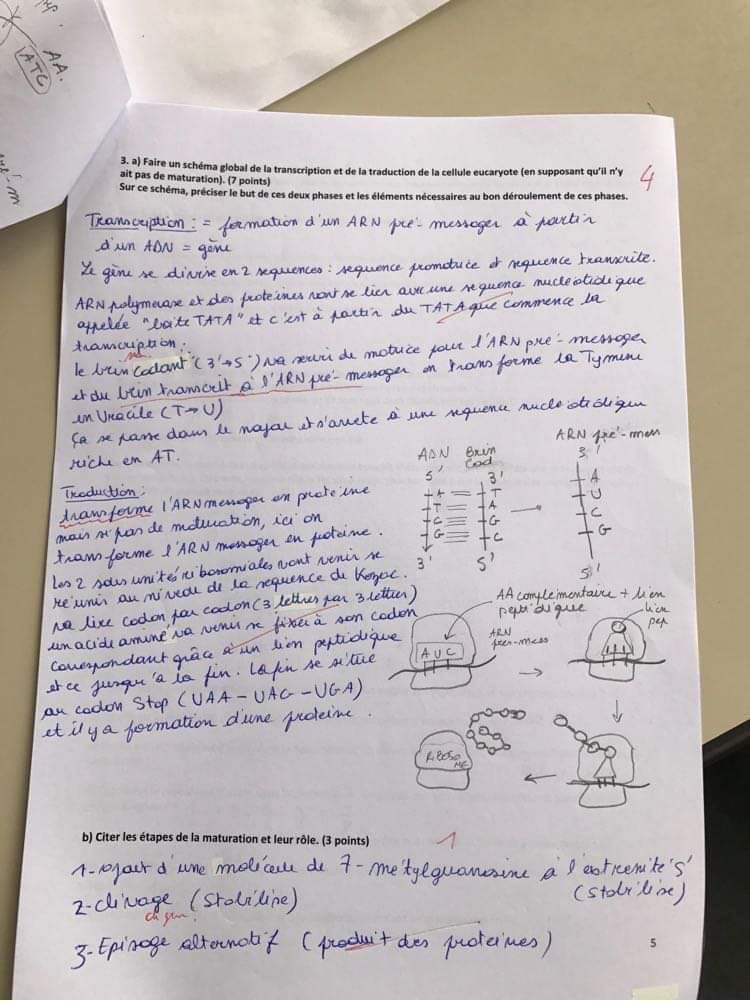 AA.
ATG
3. a) Faire un schéma global de la transcription et de la traduction de la cellule eucaryote (en supposant qu'il n'y
ait pas de maturation). (7 points)
Sur ce schéma, préciser le but de ces deux phases et les éléments nécessaires au bon déroulement de ces phases.
4
Transcription : = formation d'un ARN pré-messager à partir
d'un ADN = gène
Le gène se divise en 2 sequences : sequence promotrice et sequence transcrite.
ARN polymerase et des proteines vont se lier avec une sequence nucleotidique
appelée "boite TATA" et c'est à partir du TATA que commence la
transcription.
le brin codant (3'→5') va servir de matrice pour l'ARN pré-messager
et du brin transcrit à l'ARN pré-messager on transforme la Tymine
en Uracile (T→U)
Ça se passe dans le noyau et s'arrete à une sequence nucleotidique
riche en AT.
ADN
Brin
Cod
ARN pré-mess
5'
3'
3'
A T
T A
C G
G C
A
U
C
G
3'
5'
5'
Traduction :
transforme l'ARN messager en proteine
mais si pas de maturation, ici on
transforme l'ARN messager en proteine.
Les 2 sous unités ribosomiales vont venir se
réunir au niveau de la sequence de Kozac.
va lire codon par codon (3 lettres par 3 lettres)
un acide aminé va venir se fixer à son codon
correspondant grâce à un lien peptidique
et ce jusqu'à la fin. La fin se situe
au codon Stop (UAA - UAG - UGA)
et il y a formation d'une proteine.
AA complementaire + lien
peptidique
AUC
ARN
lien
pep
RIBOSO
ME
b) Citer les étapes de la maturation et leur rôle. (3 points)
1
1- ajout d'une molécule de 7-metylguanosine à l'extremité 5'
(Stabilise)
2- clivage (Stabilise)
3- Episage alternatif (produit des proteines)
5